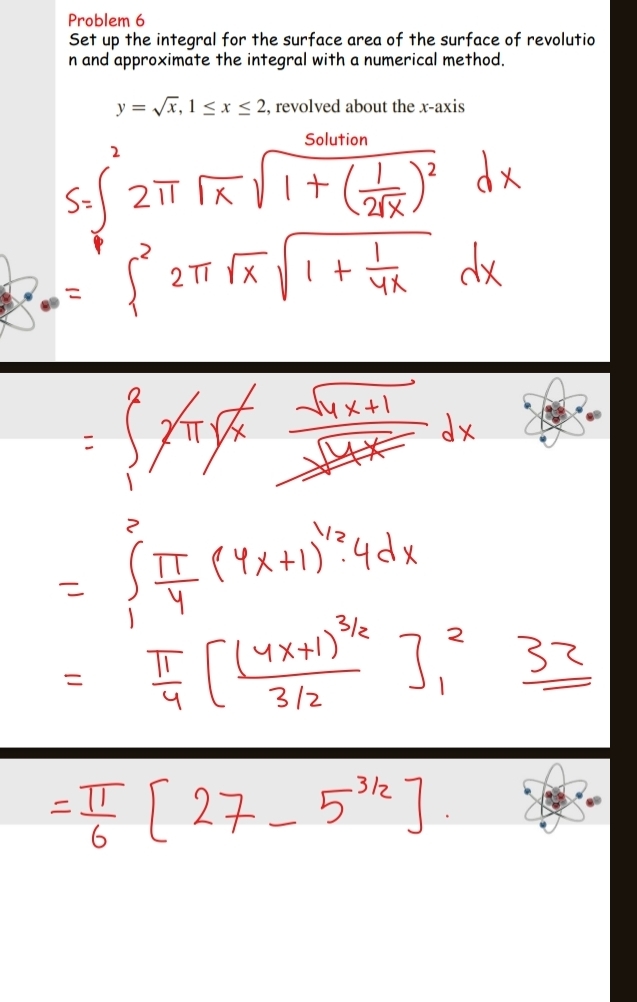 Problem 6
Set up the integral for the surface area of the surface of revolutio
n and approximate the integral with a numerical method.
y = √x, 1 ≤ x ≤ 2, revolved about the x-axis
Solution
S = ∫₁² 2π √x √(1 + (1/(2√x))²) dx
= ∫₁² 2π √x √(1 + 1/(4x)) dx
= ∫₁² 2π √x √(4x+1)/√(4x) dx
= ∫₁² π/4 (4x+1)^(1/2) · 4 dx
= π/4 [(4x+1)^(3/2) / (3/2)]₁² 32
= π/6 [27 - 5^(3/2)].